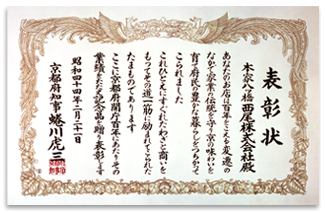 表彰状
本家八橋西尾株式会社殿
あなたのお店は百年をこえる変遷の
なかで家業の伝統を守り京の味わいを
育て府民の豊かな暮らしをつちかって
こられました
これひとえにすぐれたわざと商いを
もってその道一筋に励まれてこられた
たまものであります
ここに京都府開庁百年にあたりその
業績をたたえ記念品を贈り表彰します
昭和四十四年二月二十一日
京都府知事蜷川虎三